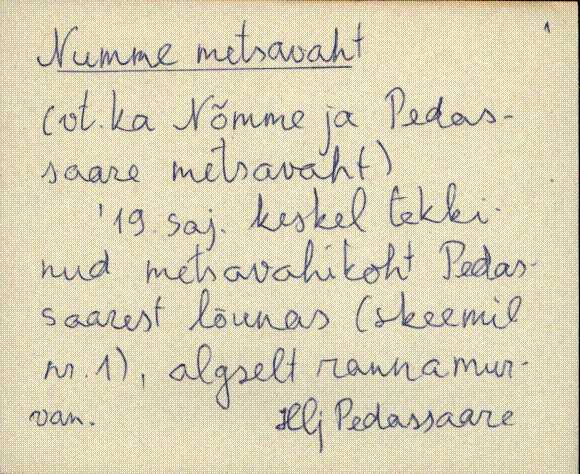 1
Numme metsavaht
(vt. ka Nõmme ja Pedas-
saare metsavaht)
'19. saj. keskel tekki-
nud metsavahikoht Pedas-
saarest lõunas (skeemil
nr. 1), algselt rannamur-
van. Hlj Pedassaare